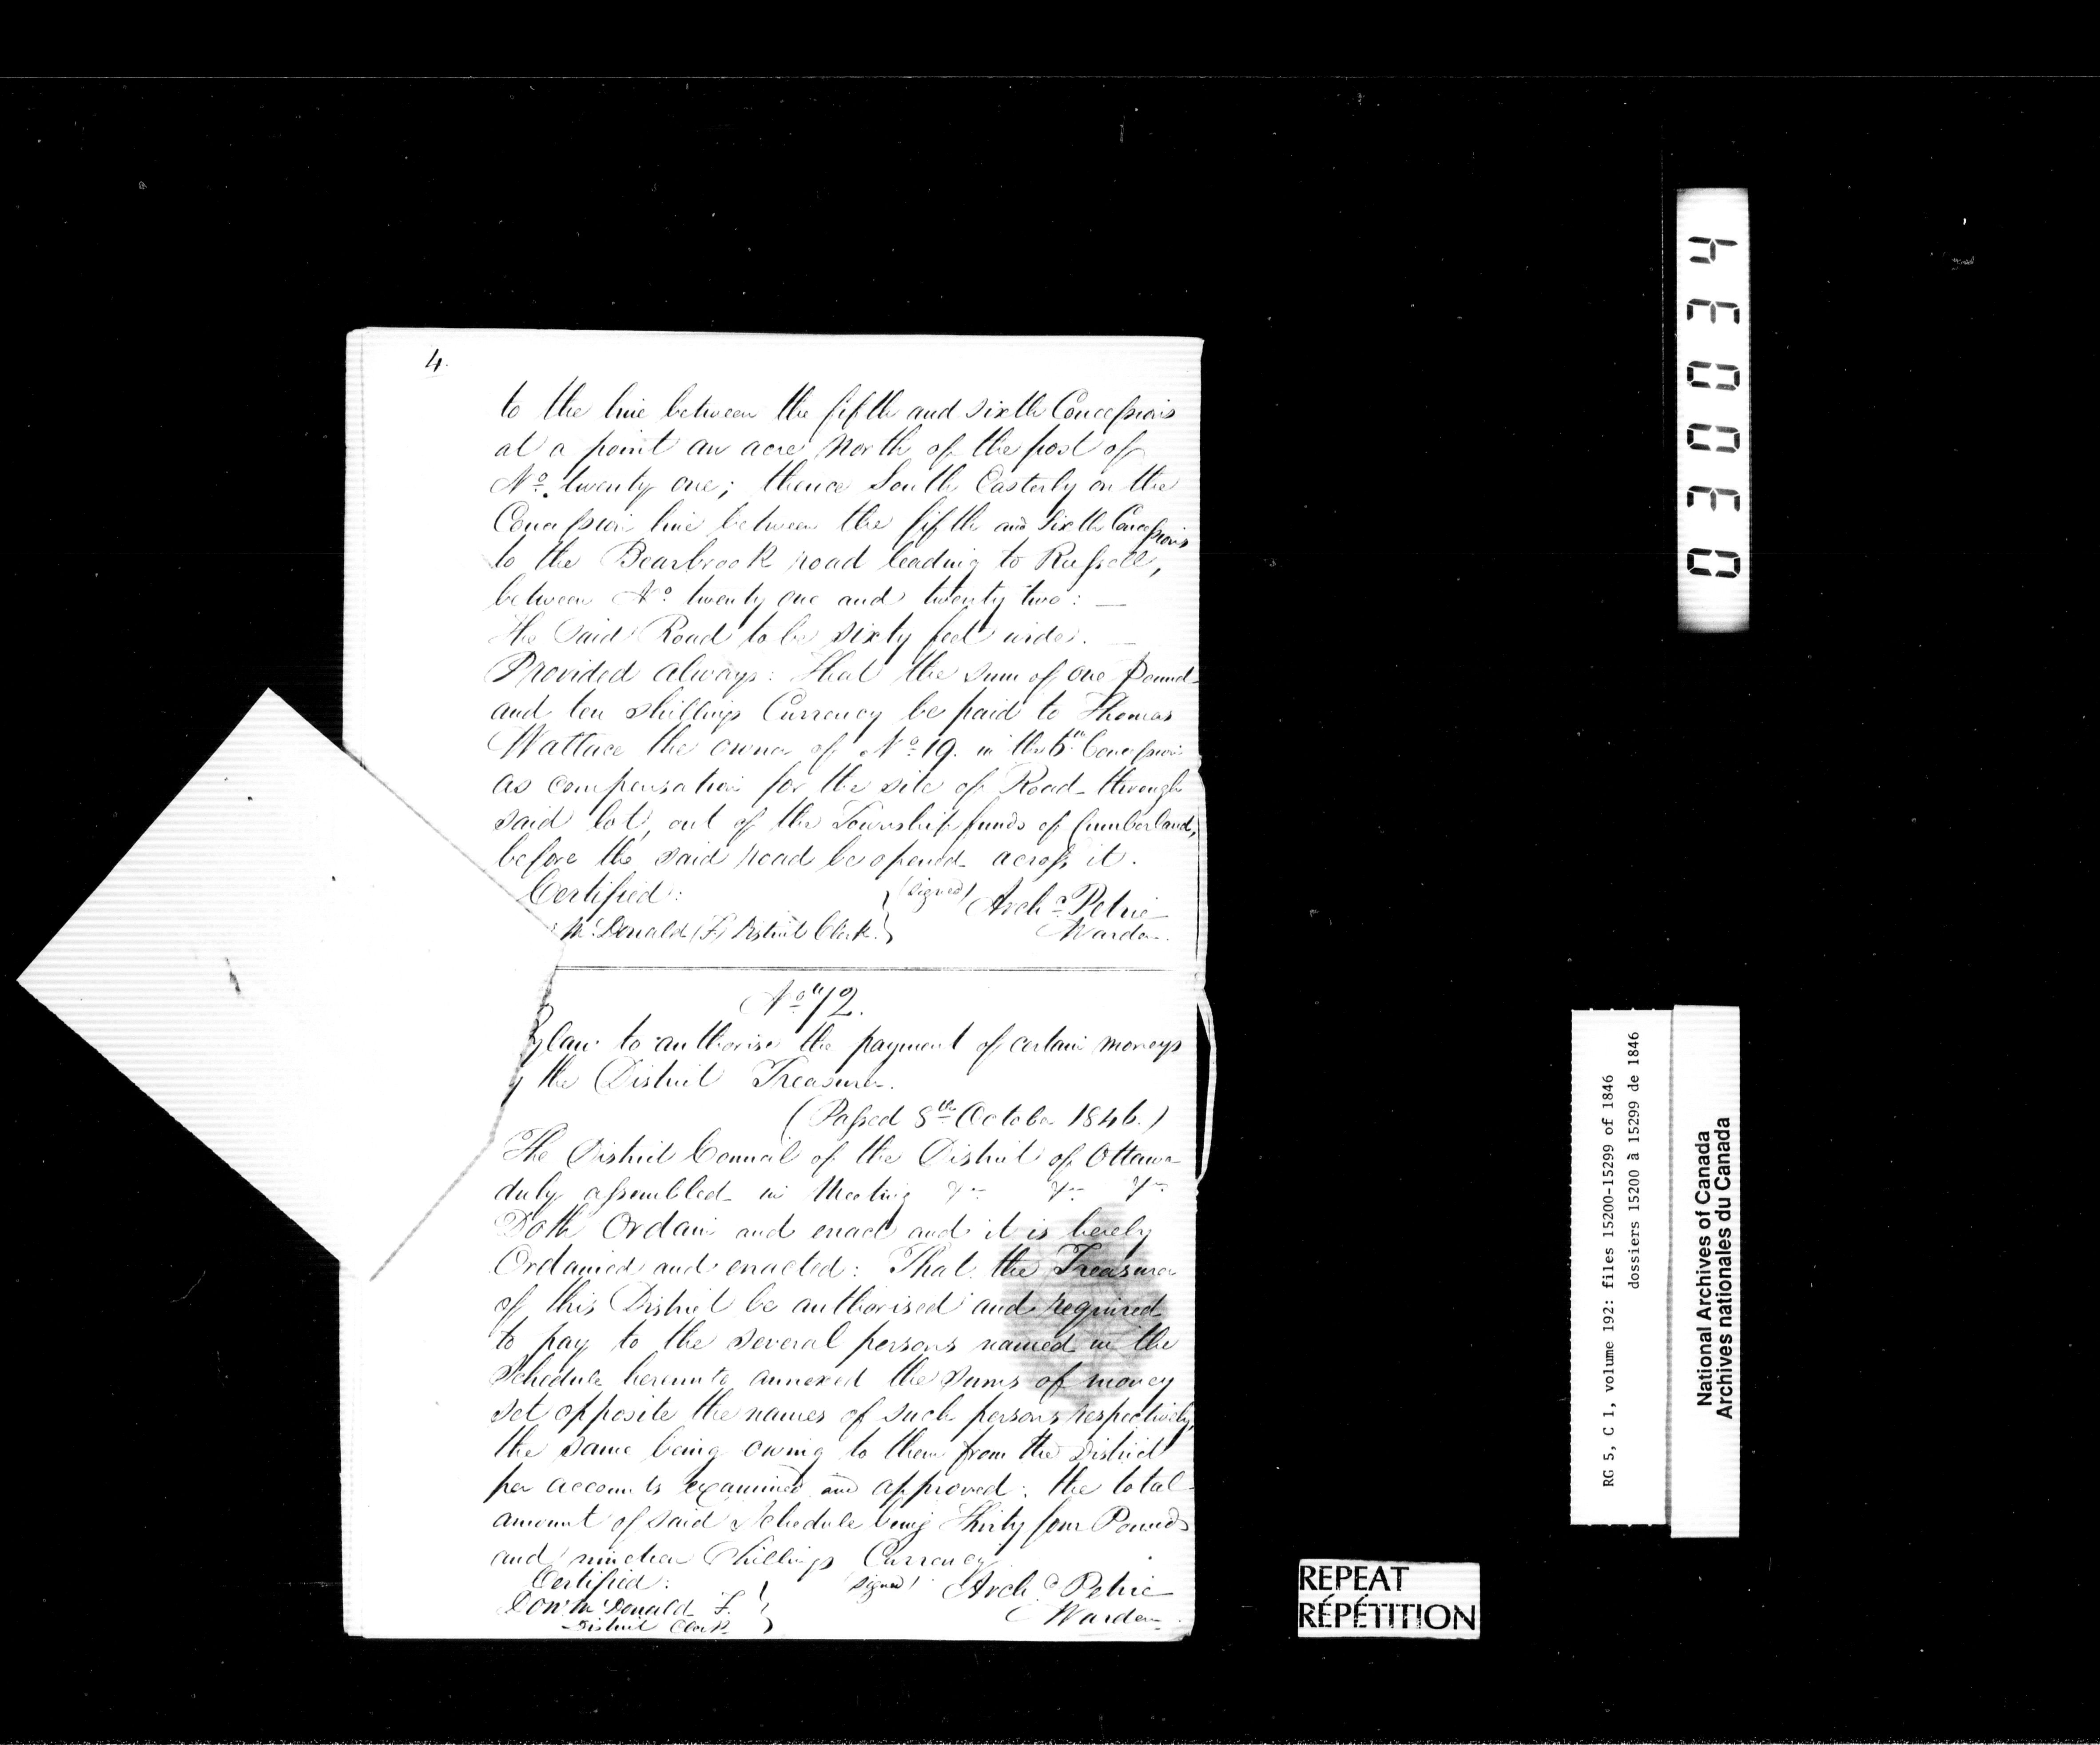 4.
to the line between the fifth and sixth Concessions
at a point an acre North of the post of
No. twenty one; thence South Easterly on the
Concession line between the fifth and Sixth Concessions
to the Bearbrook road leading to Russell,
between No twenty one and twenty two: —
The Said Road to be sixty feet wide. —
Provided always: That the sum of one Pound
and ten shillings Currency be paid to Thomas
Wallace the owner of No 19. in the 6th Concession
as compensation for the site of Road through
said lot, out of the Township funds of Cumberland,
before the said road be opened across it.
Certified: (signed) Archd Petrie
McDonald (F) District Clerk. Warden.
No 72.
Bylaw to authorise the payment of certain moneys
by the District Treasurer.
(Passed 8th October 1846.)
The District Council of the District of Ottawa
duly assembled in Meeting &c &c &c
Doth Ordain and enact and it is hereby
Ordained and enacted: That the Treasurer
of this District be authorised and required
to pay to the several persons named in the
Schedule hereunto annexed the sums of money
set opposite the names of such persons respectively,
the same being owing to them from the District
per accounts examined and approved: the total
amount of said Schedule being Thirty four Pounds
and nineteen Shillings Currency.
Certified: (signed) Archd Petrie
Don McDonald F. Warden.
District Clerk
043000
RG 5, C 1, volume 192: files 15200-15299 of 1846
dossiers 15200 à 15299 de 1846
National Archives of Canada
Archives nationales du Canada
REPEAT
RÉPÉTITION